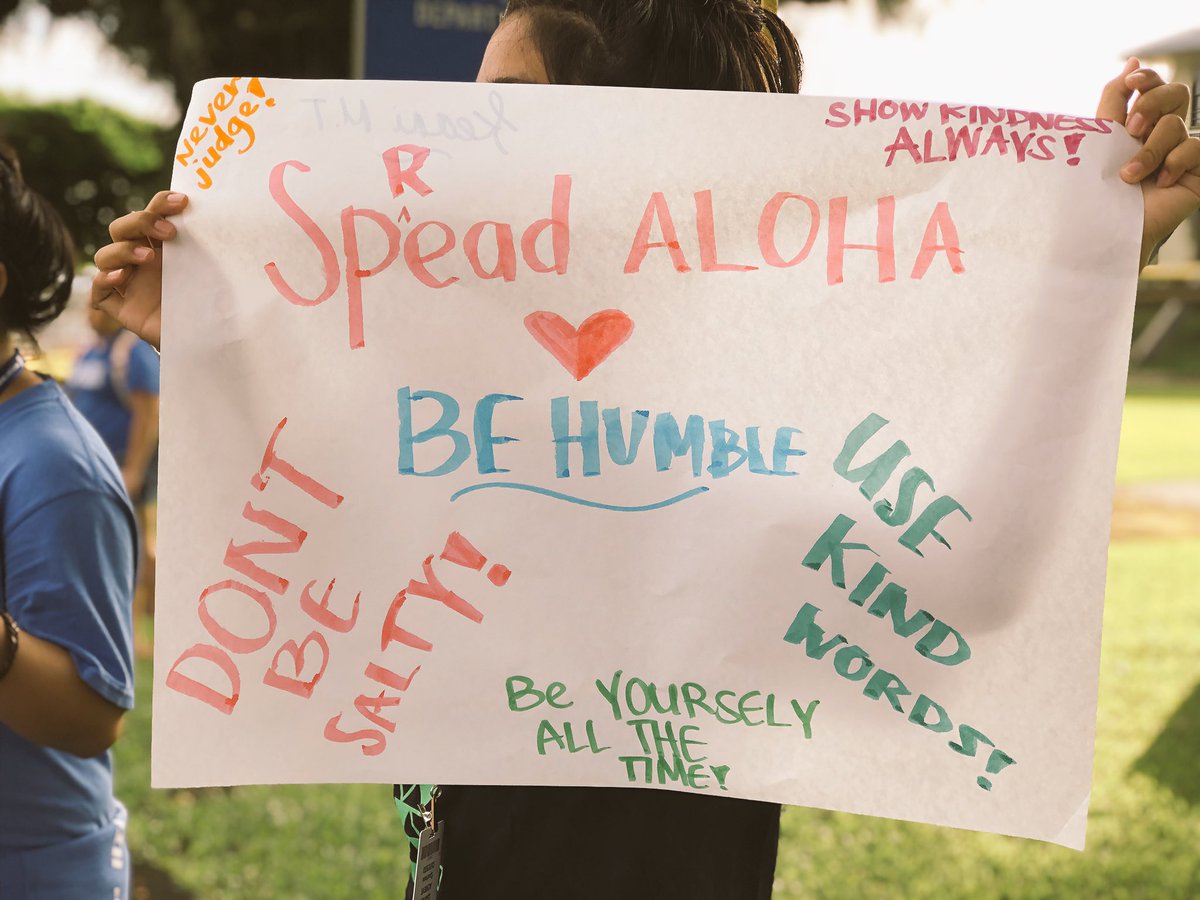 Never
judge!
SHOW KINDNESS
ALWAYS!
SpRead ALOHA
BE HUMBLE
DONT
BE
SALTY!
USE
KIND
WORDS!
Be YOURSELY
ALL THE
TIME!